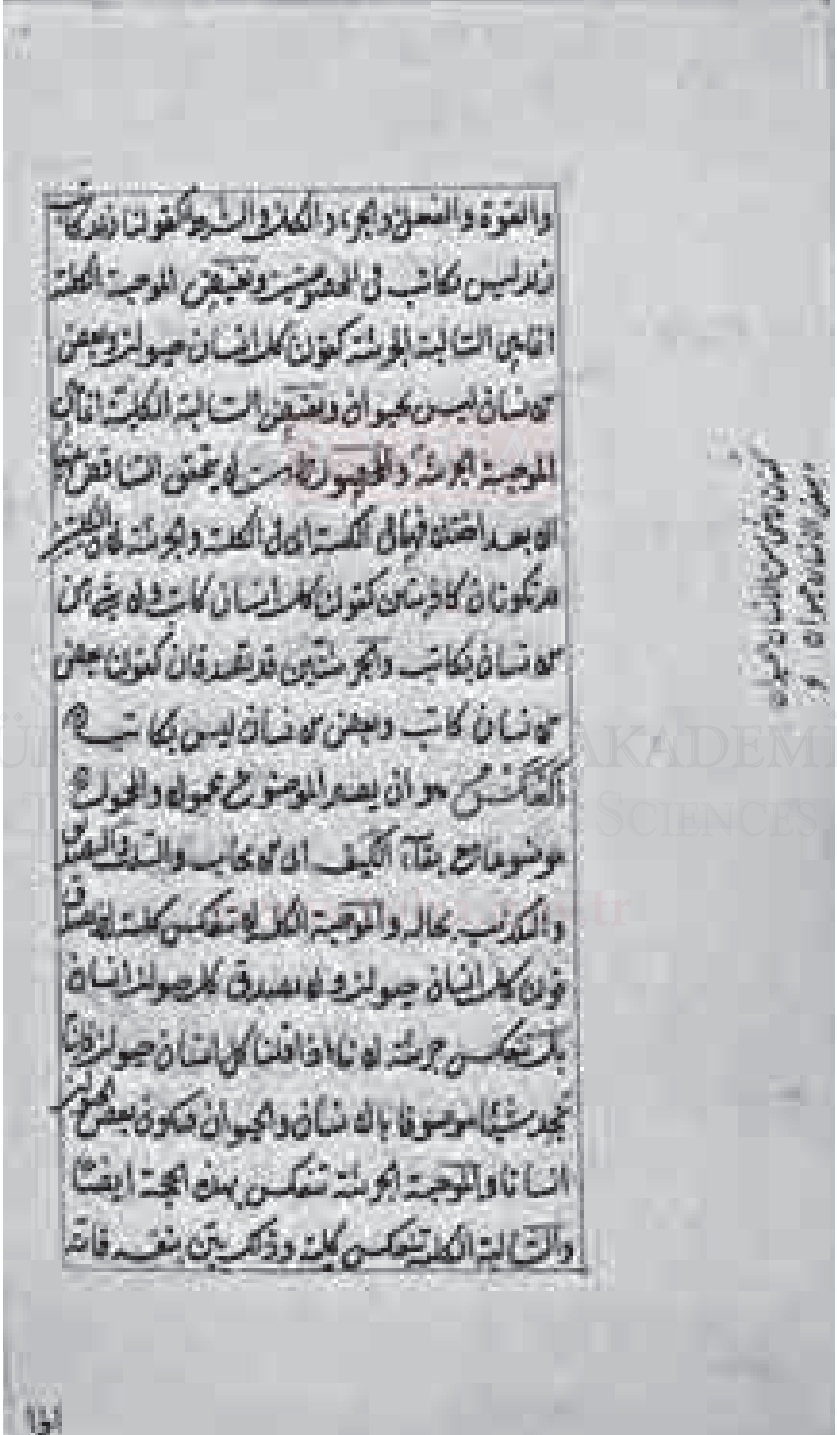 والقوة والفعل والجزء والكل والشرط كقولنا زيد كاتب
زيد ليس بكاتب في المخصوصتين ونقيض الموجبة الكلية
انما هي السالبة الجزئية كقولنا كل انسان حيوان وبعض
الانسان ليس بحيوان ونقيض السالبة الكلية انما هي
الموجبة الجزئية والمحصورات لا يتحقق التناقض
الا بعد اختلافهما في الكمية اي في الكلية والجزئية لان الكليتين
قد تكونان كاذبتين كقولنا كل انسان كاتب ولا شيء من
الانسان بكاتب والجزئيتين قد تصدقان كقولنا بعض
الانسان كاتب وبعض الانسان ليس بكاتب
العكس هو ان يصير الموضوع محمولا والمحمول
موضوعا مع بقاء الكيف اي الايجاب والسلب
والكذب بحاله والموجبة الكلية لا تنعكس كلية اذ يصدق
قولنا كل انسان حيوان ولا يصدق كل حيوان انسان
بل تنعكس جزئية لانا اذا قلنا كل انسان حيوان فانا
نجد شيئا موصوفا بالانسان والحيوان فيكون بعض الحيوان
انسانا والموجبة الجزئية تنعكس بهذه الحجة ايضا
والسالبة الكلية تنعكس كلية وذلك بين بنفسه فانه
بعض الانسان حيوان
AKADEM
SCIENCES